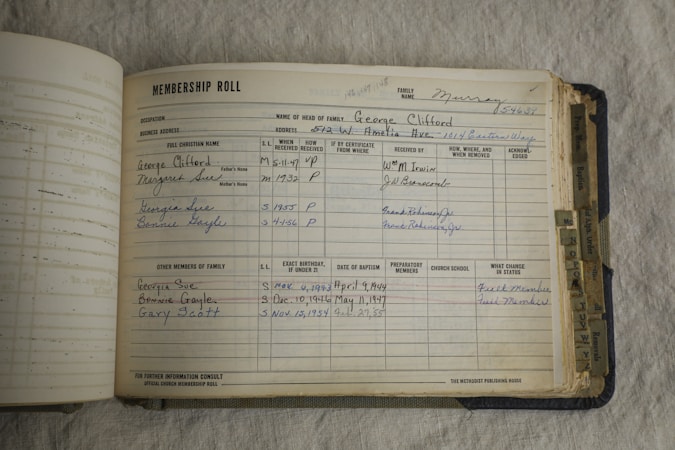 MEMBERSHIP ROLL
FAMILY NAME Murray
OCCUPATION NAME OF HEAD OF FAMILY George Clifford
BUSINESS ADDRESS ADDRESS 572 W. Amelia Ave - 1014 Eastern Way
FULL CHRISTIAN NAME S. L. WHEN RECEIVED HOW RECEIVED IF BY CERTIFICATE FROM WHERE RECEIVED BY HOW, WHERE, AND WHEN REMOVED ACKNOWLEDGED
George Clifford M 5-11-47 VP Wm M. Irwin
Father's Name
Margaret Sue M 1932 P J.W. Branscomb
Mother's Name
Georgia Sue S 1955 P Frank Robinson, Jr.
Bonnie Gayle S 4-1-56 P Frank Robinson, Jr.
OTHER MEMBERS OF FAMILY S. L. EXACT BIRTHDAY, IF UNDER 21 DATE OF BAPTISM PREPARATORY MEMBERS CHURCH SCHOOL WHAT CHANGE IN STATUS
Georgia Sue S Nov. 4, 1943 April 9, 1944 Full Member
Bonnie Gayle S Dec. 10, 1946 May 11, 1947 Full Member
Gary Scott S Nov 15, 1954 Feb. 27, 55
FOR FURTHER INFORMATION CONSULT
OFFICIAL CHURCH MEMBERSHIP ROLL THE METHODIST PUBLISHING HOUSE